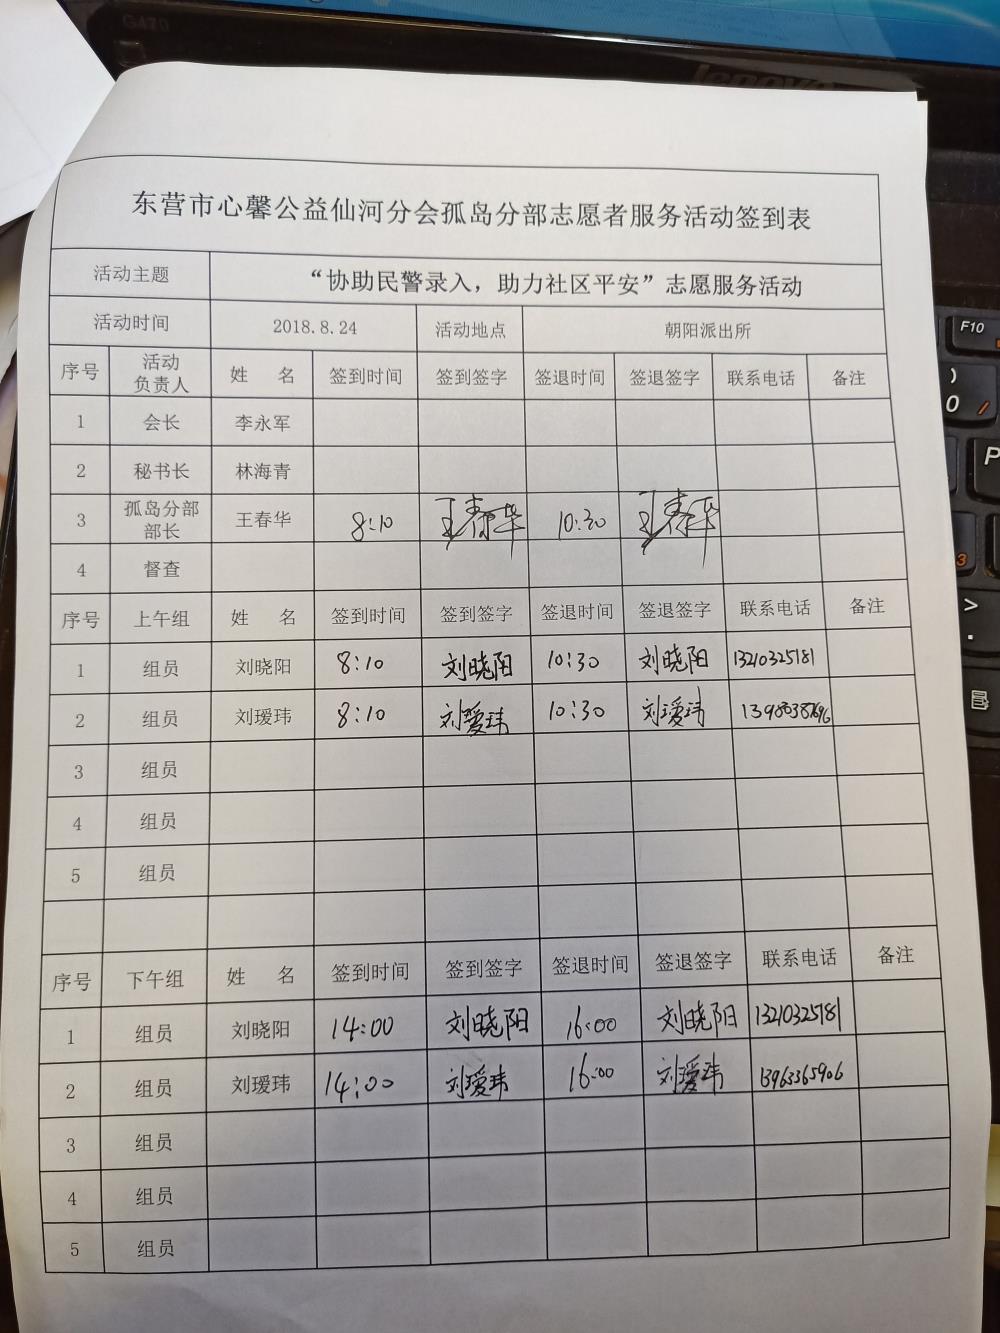 G470
lenovo
东营市心馨公益仙河分会孤岛分部志愿者服务活动签到表
活动主题 “协助民警录入，助力社区平安”志愿服务活动
活动时间 2018.8.24 活动地点 朝阳派出所
序号 活动负责人 姓 名 签到时间 签到签字 签退时间 签退签字 联系电话 备注
1 会长 李永军
2 秘书长 林海青
3 孤岛分部部长 王春华 8:10 王春华 10:30 王春华
4 督查
序号 上午组 姓 名 签到时间 签到签字 签退时间 签退签字 联系电话 备注
1 组员 刘晓阳 8:10 刘晓阳 10:30 刘晓阳 13210325181
2 组员 刘瑷玮 8:10 刘瑷玮 10:30 刘瑷玮
3 组员
4 组员
5 组员
序号 下午组 姓 名 签到时间 签到签字 签退时间 签退签字 联系电话 备注
1 组员 刘晓阳 14:00 刘晓阳 16:00 刘晓阳 13210325181
2 组员 刘瑷玮 14:00 刘瑷玮 16:00 刘瑷玮 13963365906
3 组员
4 组员
5 组员
F10
)
0
P
3
>
.